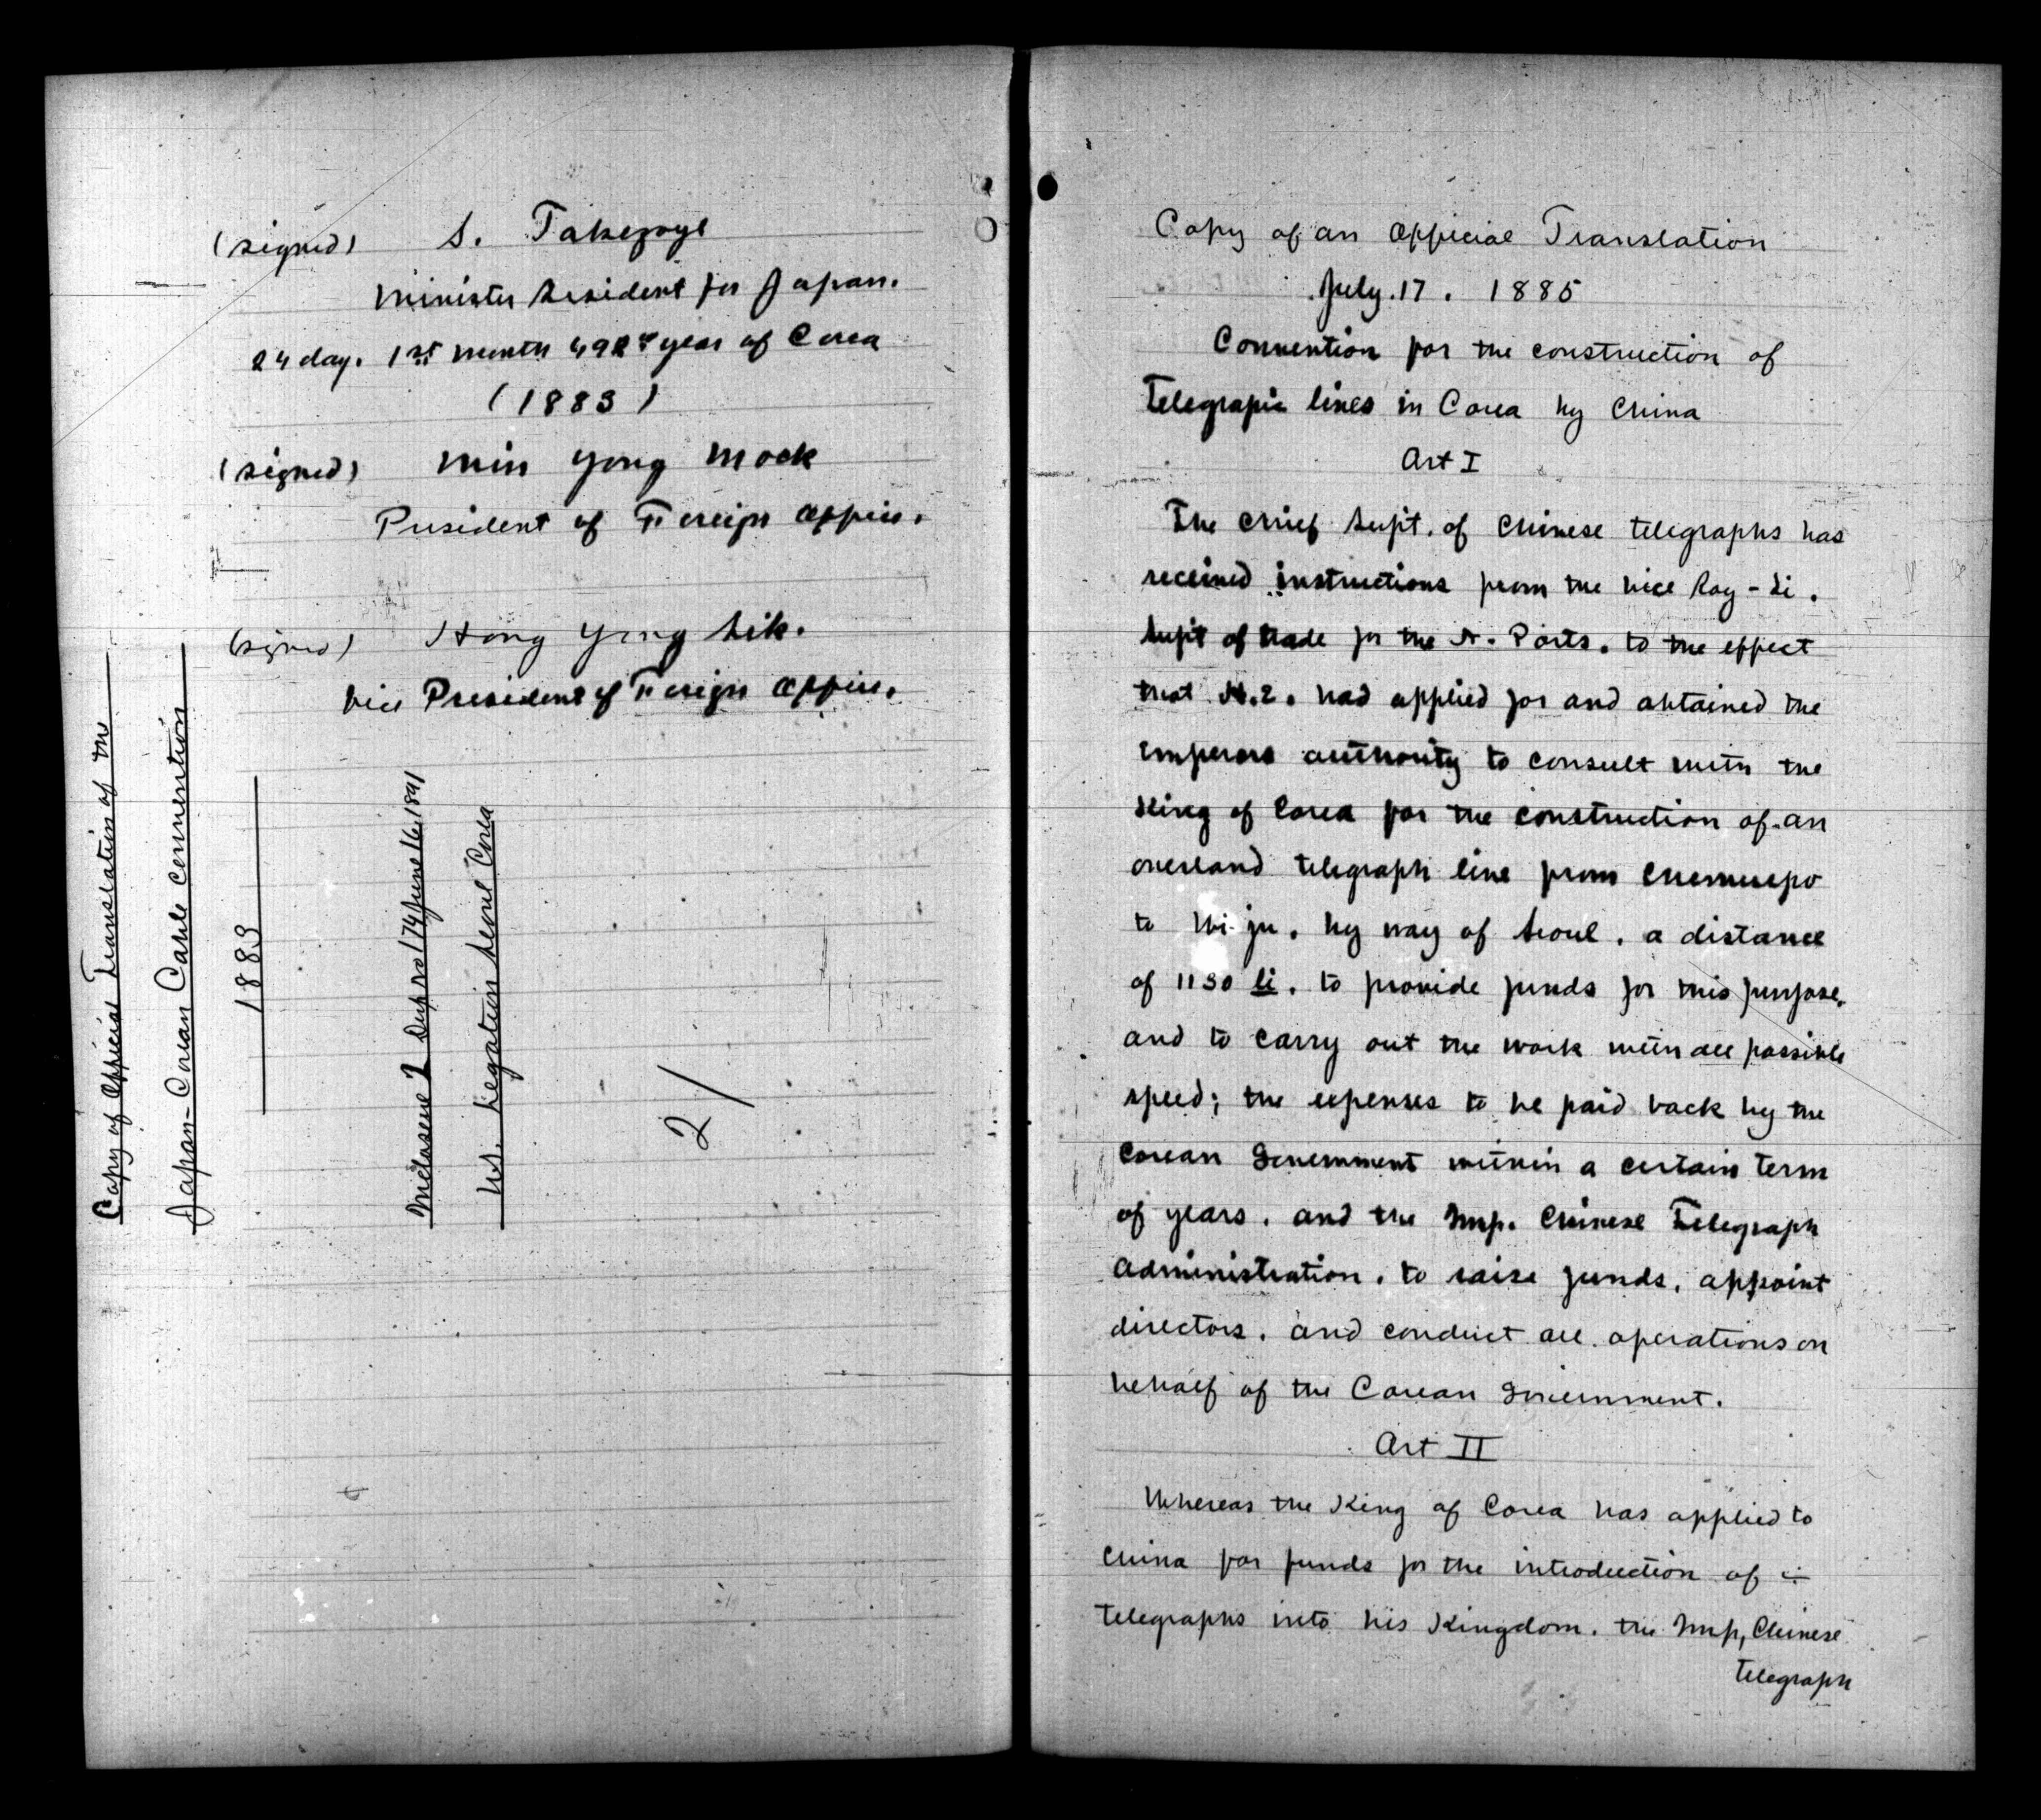 (signed) S. Takezoye
Minister Resident for Japan.
24 day. 1st month 492nd year of Corea
(1883)
(signed) Min Yong Mock
President of Foreign Office.
(signed) Hong Yong Sik.
Vice President of Foreign Office.
Copy of Official Translation of the
Japan-Corean Cable Convention
1883
Inclosure 2 Dispno 174 June 16, 1891
U.S. Legation Seoul Corea
2/
Copy of an Official Translation
July. 17. 1885
Convention for the construction of
Telegraphic lines in Corea by China
Art I
The Chief Supt. of Chinese telegraphs has
received instructions from the Vice Roy - Li.
Supt of trade for the N. Ports. to the effect
that H.E. had applied for and obtained the
Emperors authority to consult with the
King of Corea for the construction of an
overland telegraph line from Chemulpo
to Wi-ju. by way of Seoul. a distance
of 1130 li. to provide funds for this purpose.
and to carry out the work with all possible
speed; the expenses to be paid back by the
Corean Government within a certain term
of years. and the Imp. Chinese Telegraph
administration. to raise funds. appoint
directors. and conduct all operations on
behalf of the Corean Government.
Art II
Whereas the King of Corea has applied to
China for funds for the introduction of
telegraphs into his Kingdom. the Imp, Chinese
telegraph